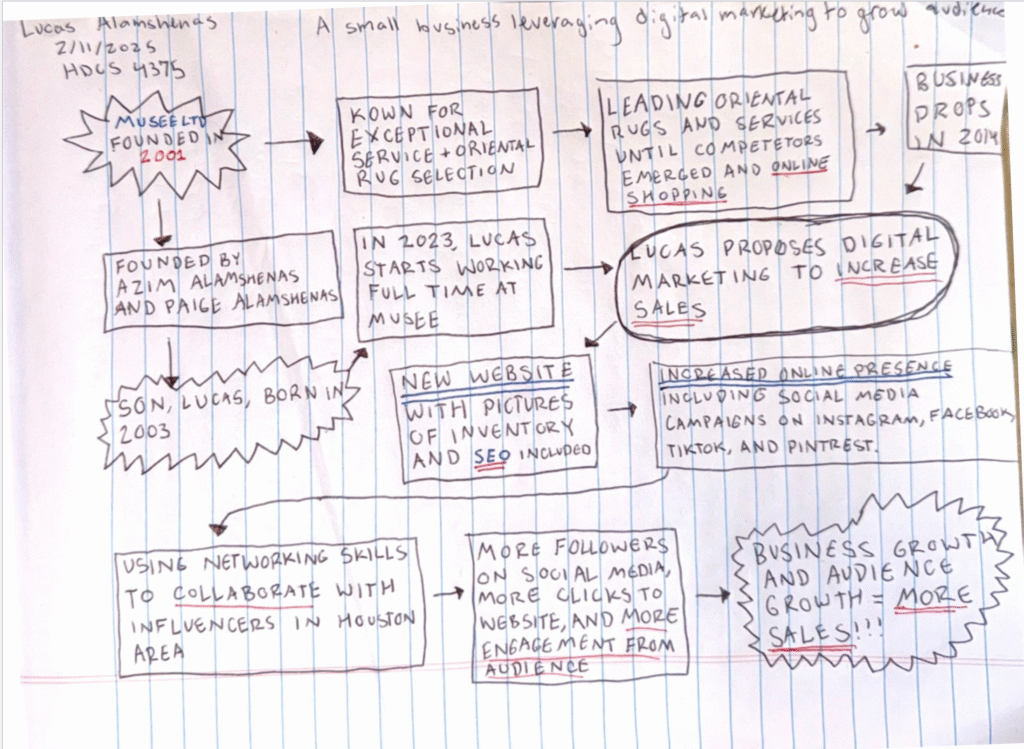 Lucas Alamshenas
A small business leveraging digital marketing to grow audience
2/11/2025
HDCS 4375
MUSEE LTD
FOUNDED IN
2001
KOWN FOR
EXCEPTIONAL
SERVICE + ORIENTAL
RUG SELECTION
LEADING ORIENTAL
RUGS AND SERVICES
UNTIL COMPETETORS
EMERGED AND ONLINE
SHOPPING
BUSINESS
DROPS
IN 2014
FOUNDED BY
AZIM ALAMSHENAS
AND PAIGE ALAMSHENAS
SON, LUCAS, BORN IN
2003
IN 2023, LUCAS
STARTS WORKING
FULL TIME AT
MUSEE
LUCAS PROPOSES DIGITAL
MARKETING TO INCREASE
SALES
NEW WEBSITE
WITH PICTURES
OF INVENTORY
AND SEO INCLUDED
INCREASED ONLINE PRESENCE
INCLUDING SOCIAL MEDIA
CAMPAIGNS ON INSTAGRAM, FACEBOOK,
TIKTOK, AND PINTREST.
USING NETWORKING SKILLS
TO COLLABORATE WITH
INFLUENCERS IN HOUSTON
AREA
MORE FOLLOWERS
ON SOCIAL MEDIA,
MORE CLICKS TO
WEBSITE, AND MORE
ENGAGEMENT FROM
AUDIENCE
BUSINESS GROWTH
AND AUDIENCE
GROWTH = MORE
SALES!!!